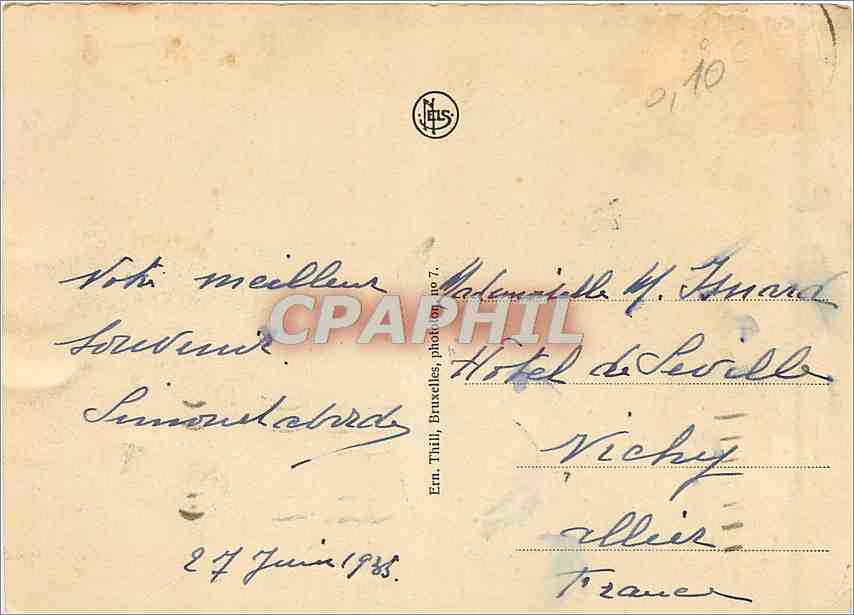 0,10
NELS
Notre meilleur
souvenir
27 Juin 1935.
CPAPHIL
Ern. Thill, Bruxelles, phototyp. no 7.
Mademoiselle M. Isnard
Hôtel de Séville
Vichy
Allier
France